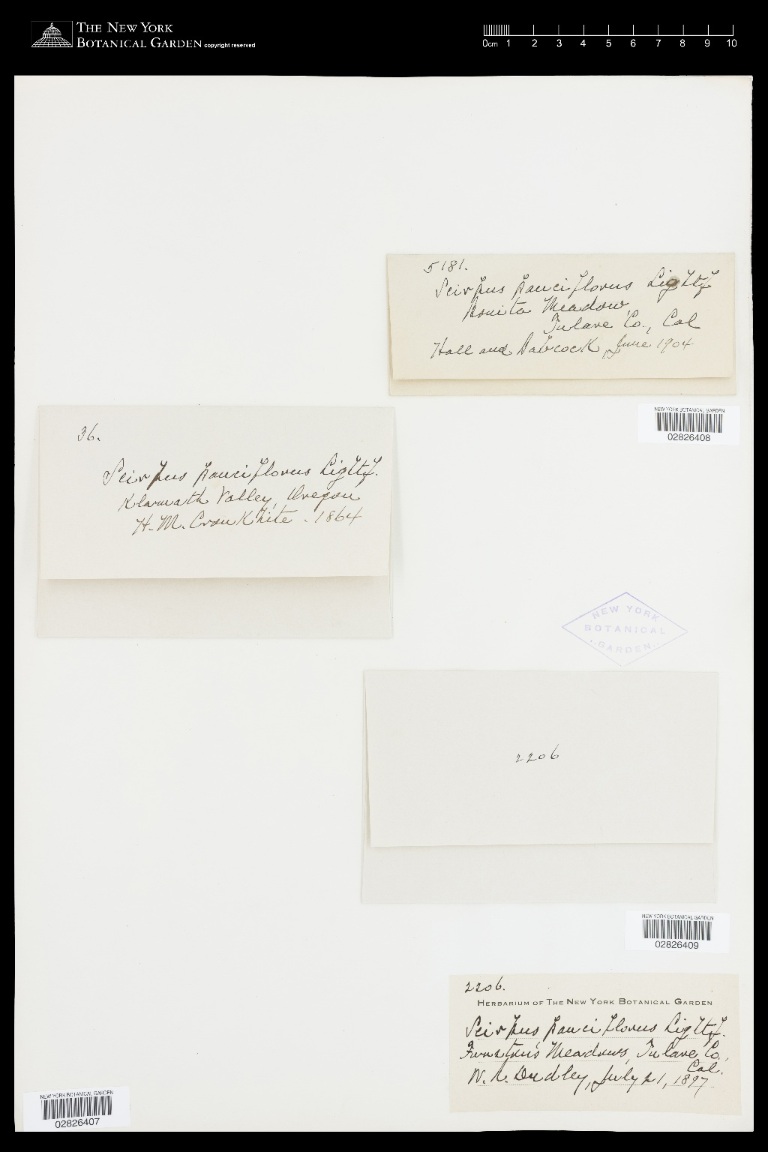 THE NEW YORK
BOTANICAL GARDEN copyright reserved
0cm 1 2 3 4 5 6 7 8 9 10
5181.
Scirpus pauciflorus Lightf.
Bonita Meadow,
Tulare Co., Cal
Hall and Babcock, June 1904
NEW YORK BOTANICAL GARDEN
02826408
36.
Scirpus pauciflorus Lightf.
Klamath Valley, Oregon
H. M. Cronkhite - 1864
NEW YORK
BOTANICAL
GARDEN
2206
NEW YORK BOTANICAL GARDEN
02826409
2206.
HERBARIUM OF THE NEW YORK BOTANICAL GARDEN
Scirpus pauciflorus Lightf.
Funston's Meadows, Tulare Co.,
Cal.
W. R. Dudley, July 21, 1897.
NEW YORK BOTANICAL GARDEN
02826407